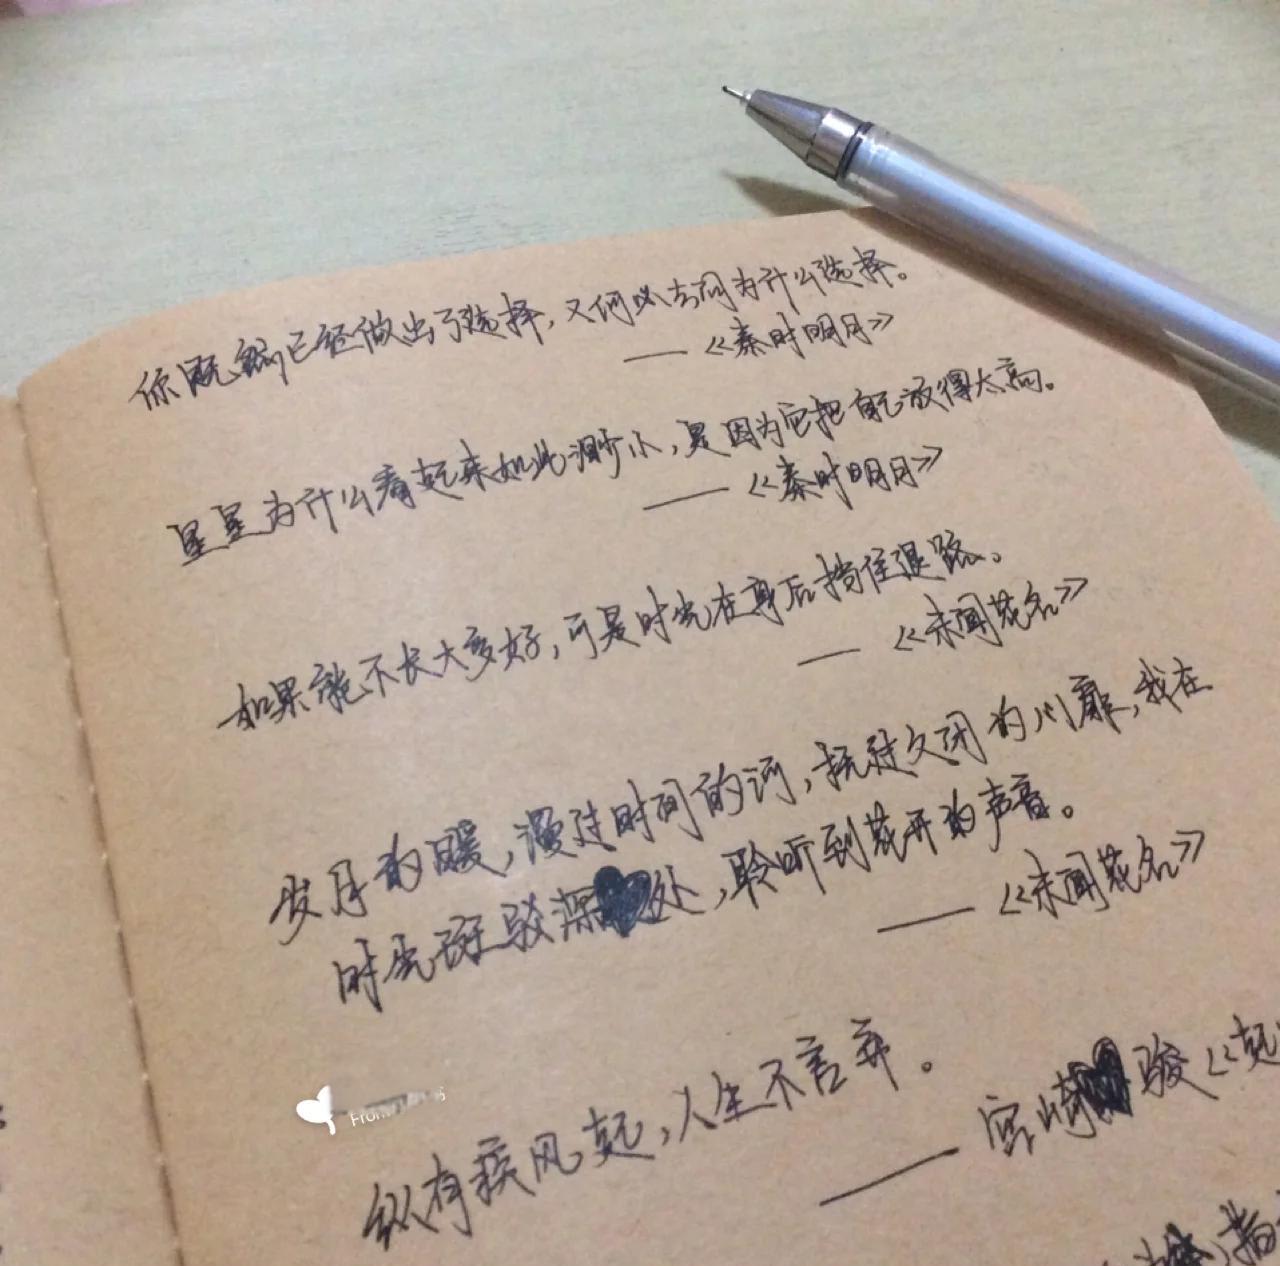 你既然已经做出了选择，又何必去问为什么选择。
—— 《秦时明月》
星星为什么看起来如此渺小，是因为它把自己放得太高。
—— 《秦时明月》
如果能不长大多好，可是时光在身后挡住退路。
—— 《未闻花名》
岁月的暖，漫过时间的河，抚过久闭的心扉，我在
时光斑驳深处，聆听到花开的声音。
—— 《未闻花名》
纵有疾风起，人生不言弃。
—— 宫崎骏《起